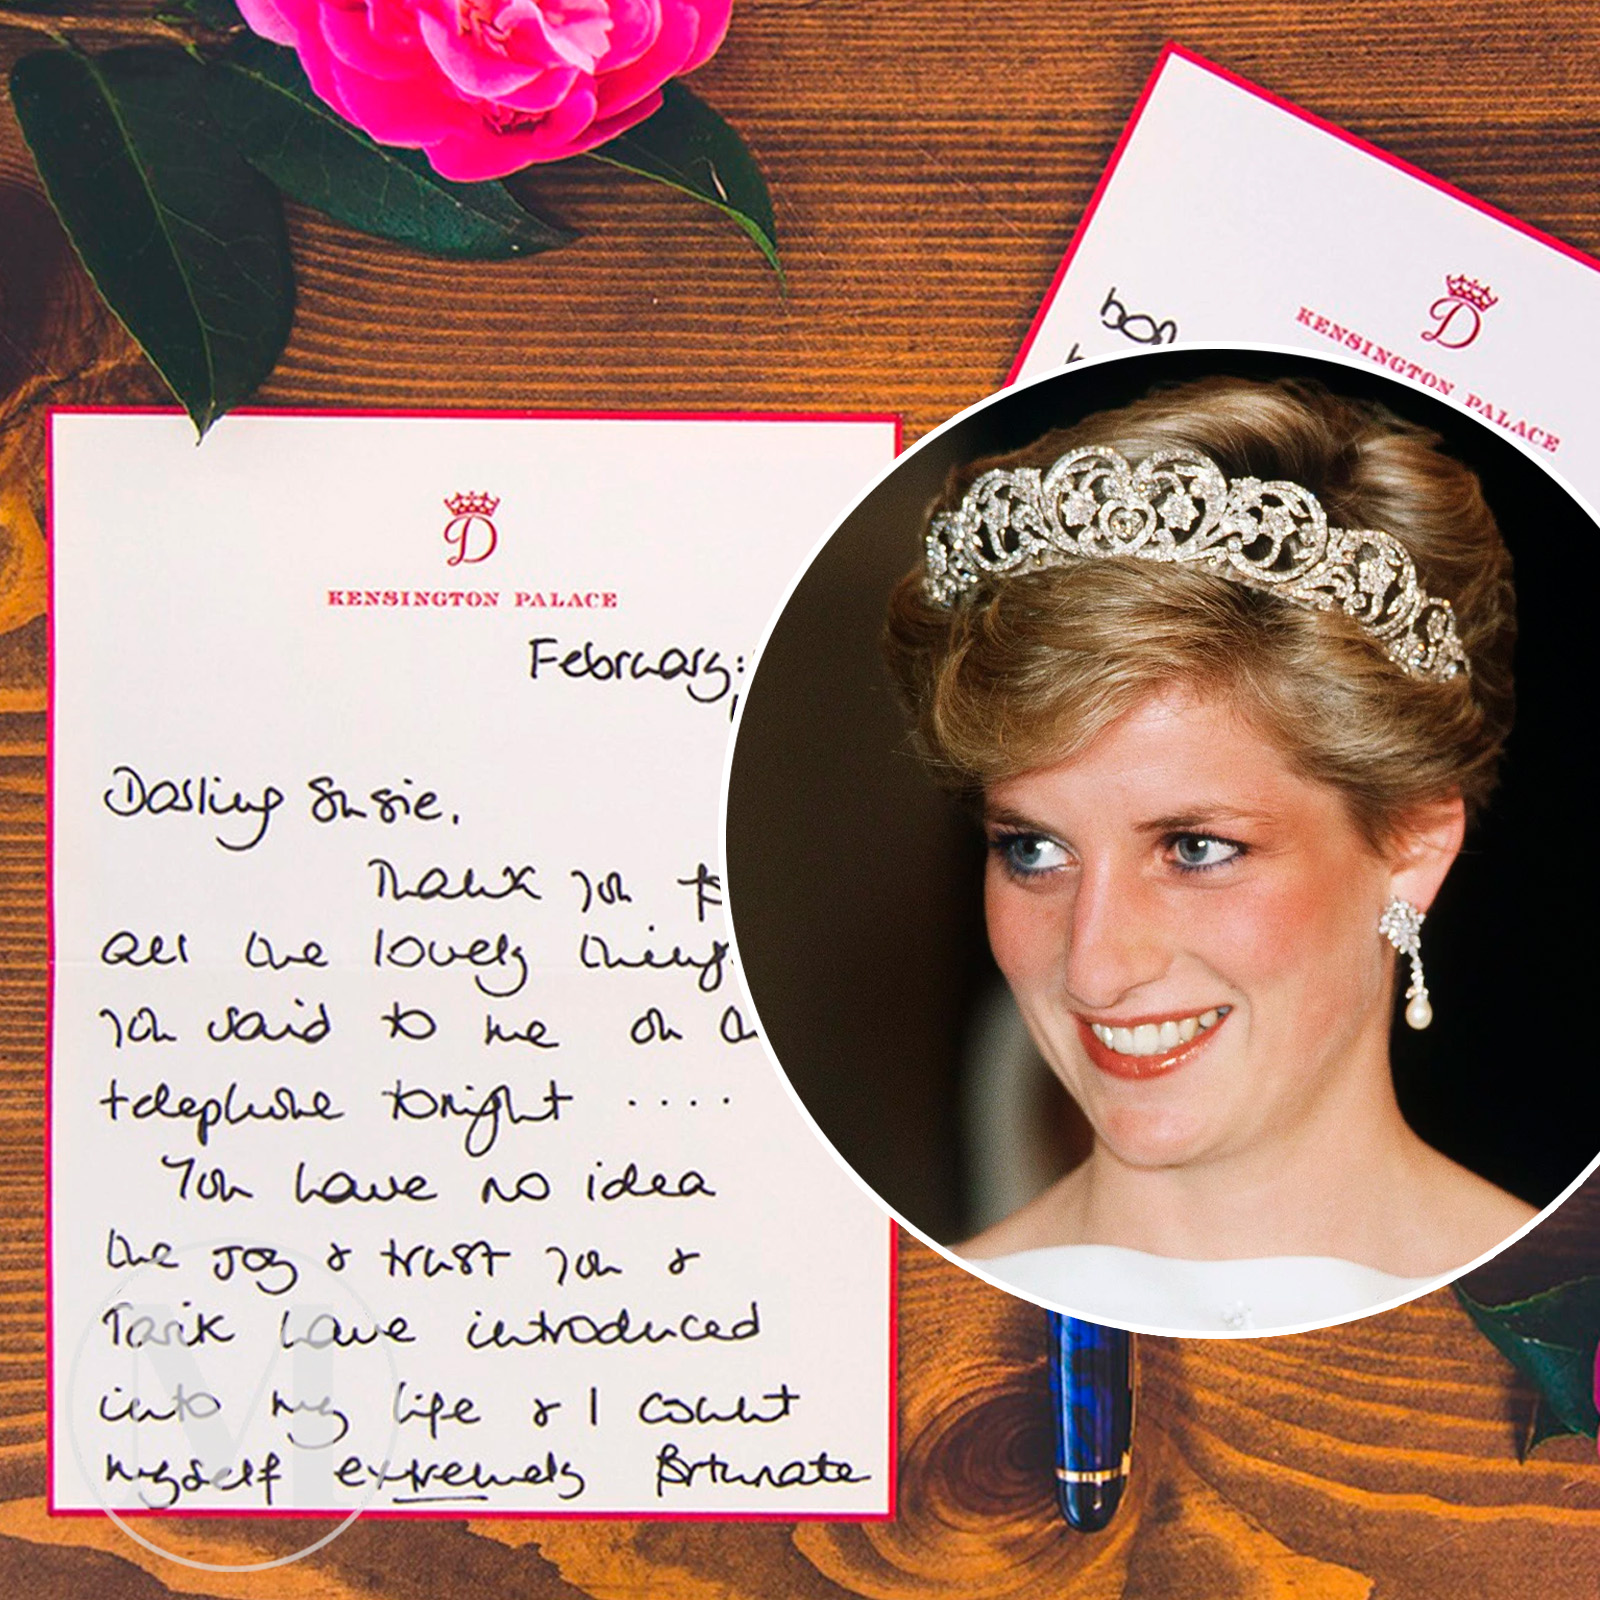 D
KENSINGTON PALACE
February:
Darling Susie,
Thank you
all the lovely things
you said to me on
telephone tonight ....
You have no idea
the joy & trust you &
Tarik have introduced
into my life & I count
myself extremely fortunate
you
D
KENSINGTON PALACE
M